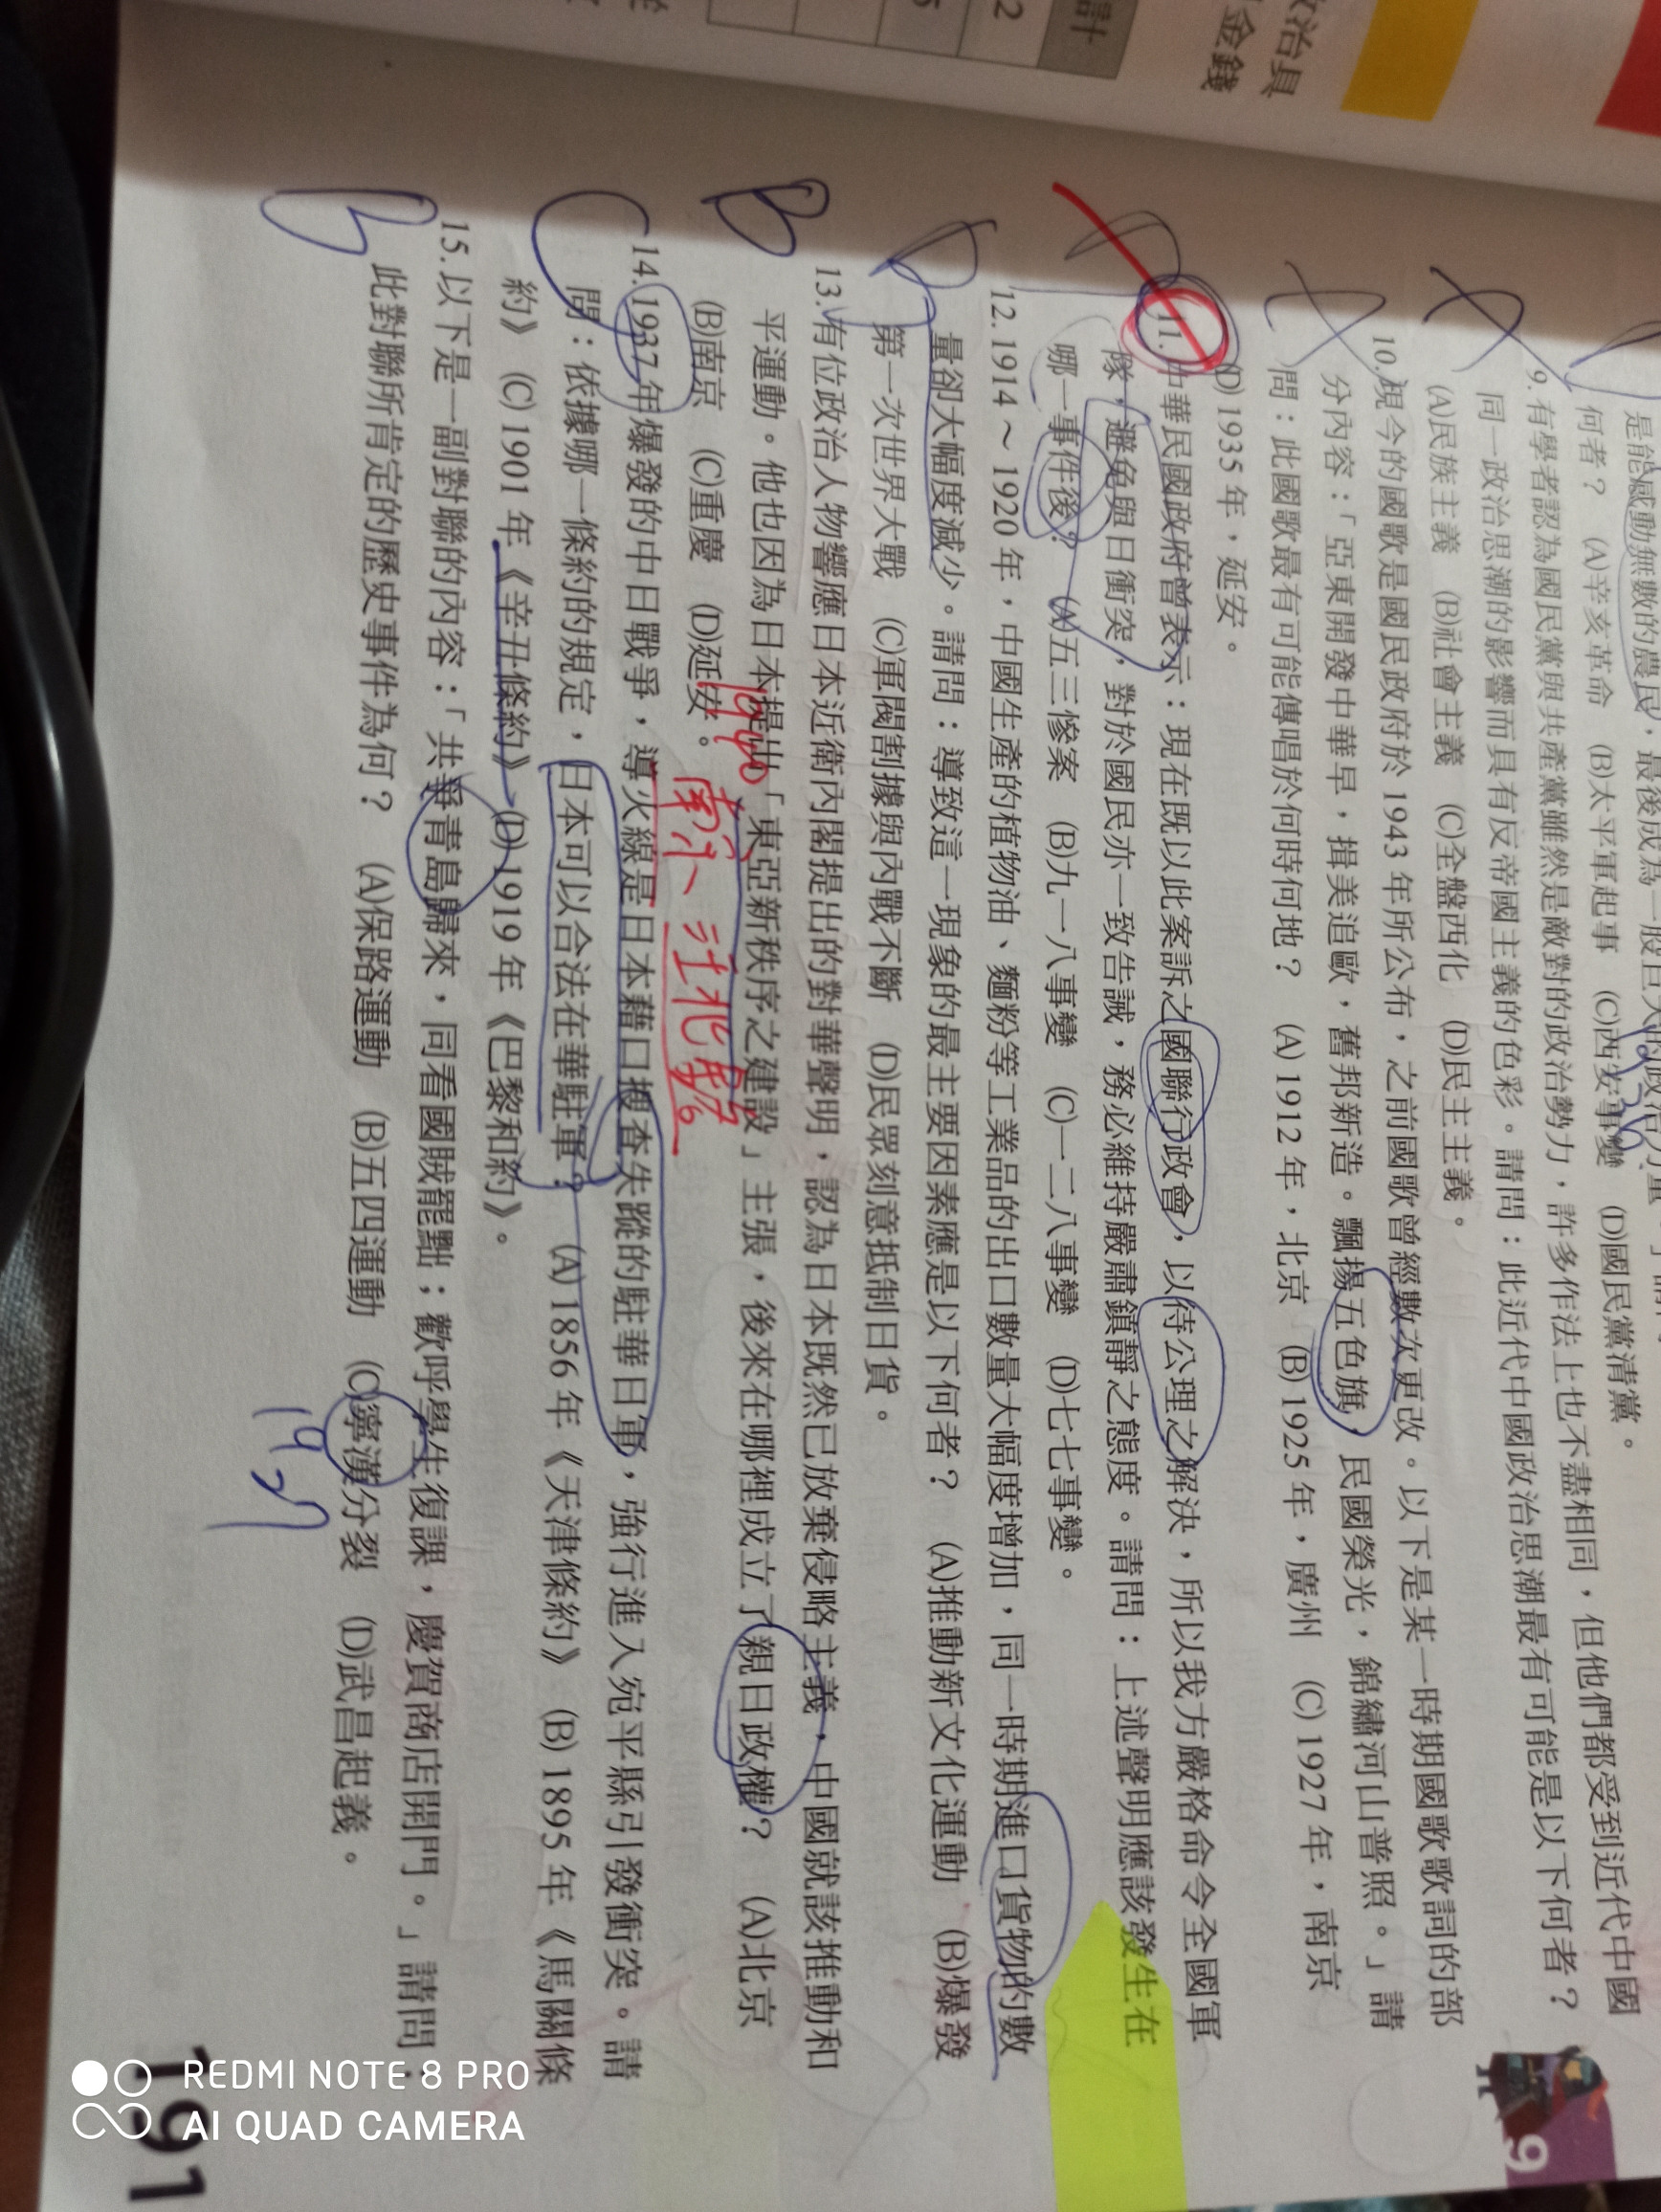 政治具
金錢
計
2
是能感動無數的農民，最後成為一股巨大的政治力量。」請問
何者？ (A)辛亥革命 (B)太平軍起事 (C)西安事變 (D)國民黨清黨。
9. 有學者認為國民黨與共產黨雖然是敵對的政治勢力，許多作法上也不盡相同，但他們都受到近代中國
同一政治思潮的影響而具有反帝國主義的色彩。請問：此近代中國政治思潮最有可能是以下何者？
(A)民族主義 (B)社會主義 (C)全盤西化 (D)民主主義。
10. 現今的國歌是國民政府於 1943 年所公布，之前國歌曾經數次更改。以下是某一時期國歌歌詞的部
分內容：「亞東開發中華早，揖美追歐，舊邦新造。飄揚五色旗，民國榮光，錦繡河山普照。」請
問：此國歌最有可能傳唱於何時何地？ (A) 1912 年，北京 (B) 1925 年，廣州 (C) 1927 年，南京
(D) 1935 年，延安。
11. 中華民國政府曾表示：現在既以此案訴之國聯行政會，以待公理之解決，所以我方嚴格命令全國軍
隊，避免與日衝突，對於國民亦一致告誡，務必維持嚴肅鎮靜之態度。請問：上述聲明應該發生在
哪一事件後？ (A)五三慘案 (B)九一八事變 (C)一二八事變 (D)七七事變。
12. 1914～1920 年，中國生產的植物油、麵粉等工業品的出口數量大幅度增加，同一時期進口貨物的數
量卻大幅度減少。請問：導致這一現象的最主要因素應是以下何者？ (A)推動新文化運動 (B)爆發
第一次世界大戰 (C)軍閥割據與內戰不斷 (D)民眾刻意抵制日貨。
B
13. 有位政治人物響應日本近衛內閣提出的對華聲明，認為日本既然已放棄侵略主義，中國就該推動和
平運動。他也因為日本提出「東亞新秩序之建設」主張，後來在哪裡成立了親日政權？ (A)北京
(B)南京 (C)重慶 (D)延安。
1940 南京、汪兆銘
C
14. 1937 年爆發的中日戰爭，導火線是日本藉口搜查失蹤的駐華日軍，強行進入宛平縣引發衝突。請
問：依據哪一條約的規定，日本可以合法在華駐軍？ (A) 1856 年《天津條約》 (B) 1895 年《馬關條
約》 (C) 1901 年《辛丑條約》 (D) 1919 年《巴黎和約》。
15. 以下是一副對聯的內容：「共爭青島歸來，同看國賊罷黜；歡呼學生復課，慶賀商店開門。」請問：
此對聯所肯定的歷史事件為何？ (A)保路運動 (B)五四運動 (C)寧漢分裂 (D)武昌起義。
1927
9
191
REDMI NOTE 8 PRO
AI QUAD CAMERA